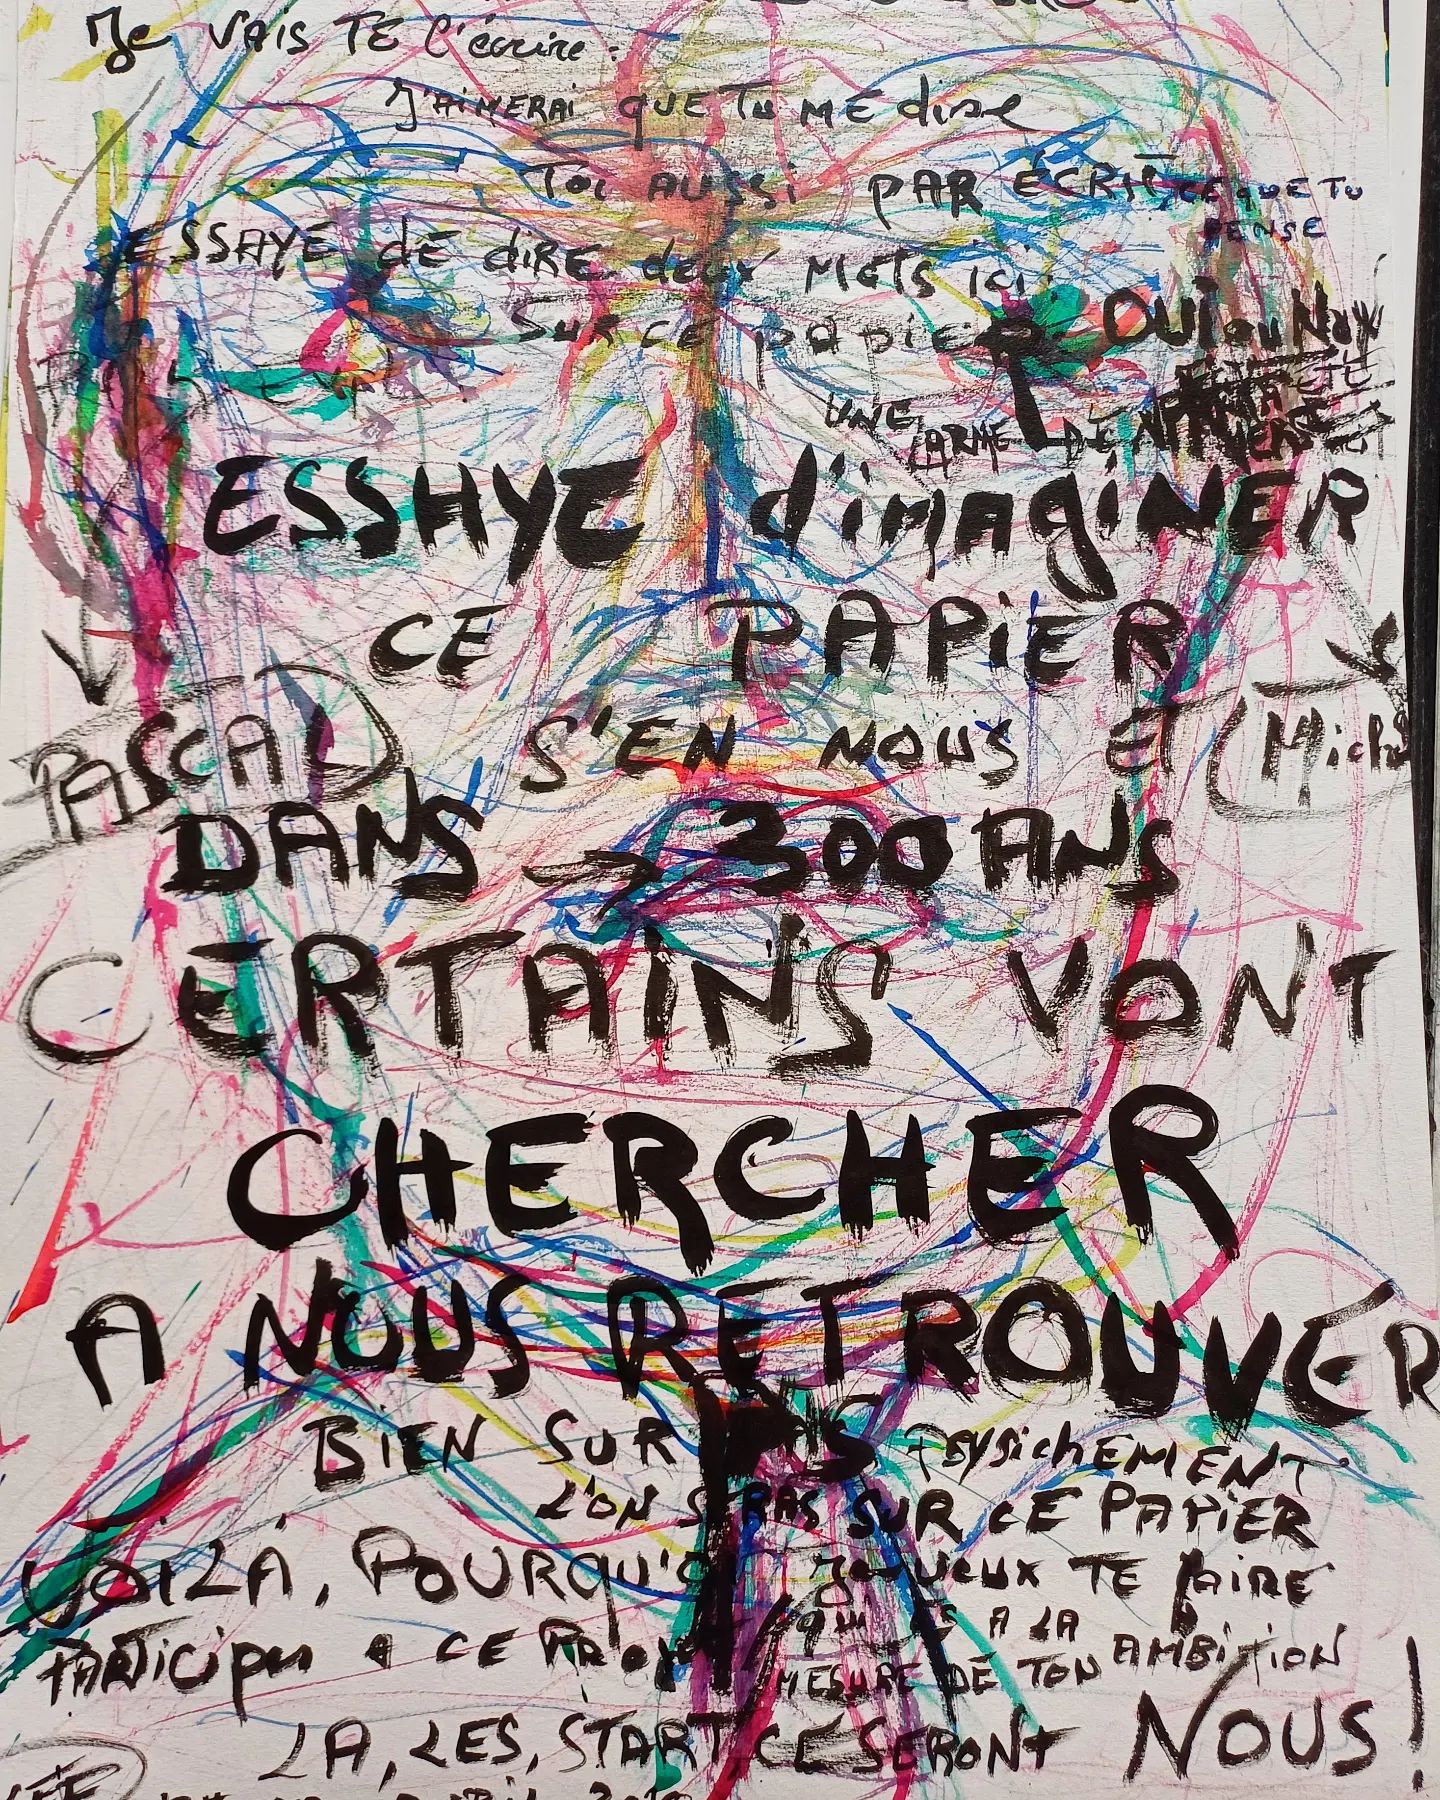 Je VAIS TE l'écrire :
J'AIMERAI QUE TU ME dise
TOI AUSSI PAR ÉCRIT CE QUE TU
PENSE
ESSAYE dE diRE deux MOTS ici
SUR CE PAPIER OUI OU NON
UNE
LARME DE
ESSAYE d'imaginER
CE PAPIER
PASCAL S'EN NOUS ET
DANS → 300 ANS
CERTAINS VONT
CHERCHER
A NOUS RETROUVER
BIEN SUR PAS PsysichEMENT
L'ON SERAS SUR CE PAPIER
VOILÀ, POURQUOI Je VEUX TE FAIRE
PARTiciper A CE PROJET QUI ES A LA
MESURE DE TON AMBITION
LA, LES, START, CE SERONT NOUS!